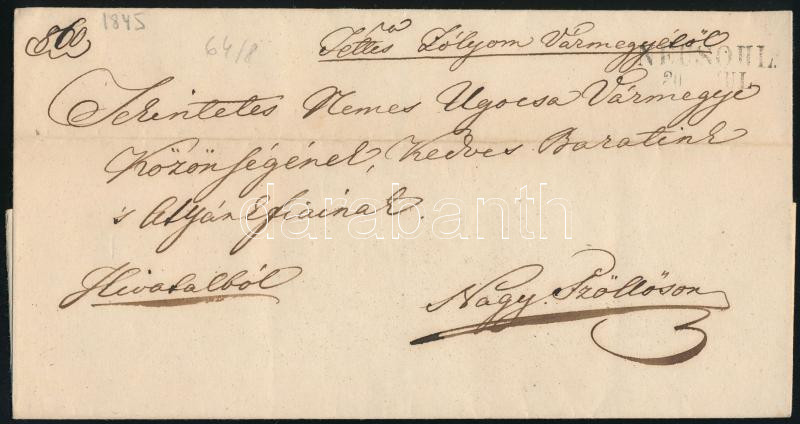 1845
64/8
Ttttes Zólyom Vármegyétöl
NEUSOHL
20 JUL
Tekintetes Nemes Ugocsa Vármegye
Közönségének, Kedves Baratink
's Atyánkfiainak.
Hivatalból
Nagy Szöllösön
darabanth